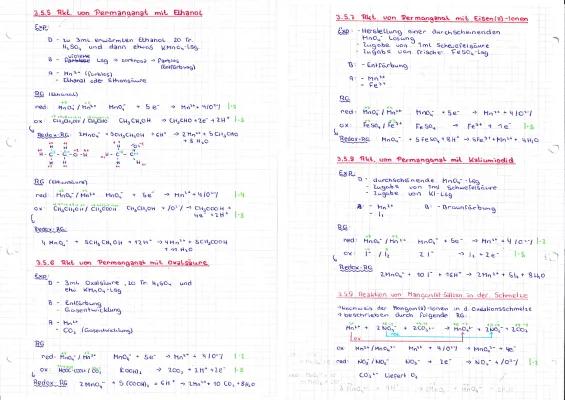 3.5.5 Rkt. von Permanganat mit Ethanol
Exp:
D - zu 3mL erwärmten Ethanol 20 Tr.
H₂SO₄ und dann etwas KMnO₄-Lsg
B - Lsg → → farblos
(Entfärbung)
A - Mn²⁺ (farblos)
- Ethanal oder Ethansäure
RG (Ethanal)
red: MnO₄⁻/Mn²⁺ MnO₄⁻ + 5e⁻ → Mn²⁺ + 4/O²⁻/
ox: CH₃CH₂OH / CH₃CHO CH₃CH₂OH → CH₃CHO + 2e⁻ + 2H⁺
Redox-RG 2MnO₄⁻ + 5CH₃CH₂OH + 6H⁺ → 2Mn²⁺ + 5CH₃CHO
+ 8H₂O
RG (Ethansäure)
red: MnO₄⁻/Mn²⁺ MnO₄⁻ + 5e⁻ → Mn²⁺ + 4/O²⁻/ |·4
ox: CH₃CH₂OH / CH₃COOH CH₃CH₂OH + /O²⁻/ → CH₃COOH +
4e⁻ + 2H⁺ |·5
Redox-RG:
4 MnO₄⁻ + 5CH₃CH₂OH + 12H⁺ → 4Mn²⁺ + 5CH₃COOH
+ 11 H₂O
3.5.6 Rkt von Permanganat mit Oxalsäure
Exp:
D - 3mL Oxalsäure, 20 Tr H₂SO₄ und
KMnO₄-Lsg
B - Entfärbung
- Gasentwicklung
A - Mn²⁺
- CO₂ (Gasentwicklung)
RG
red: MnO₄⁻/Mn²⁺ MnO₄⁻ + 5e⁻ → Mn²⁺ + 4/O²⁻/
ox: → 2CO₂ + 2H⁺ + 2e⁻ |·5
Redox-RG 2MnO₄⁻ + 5(COOH)₂ + 6H⁺ → 2Mn²⁺ + 10 CO₂ + 8H₂O
3.5.7 Rkt. von Permanganat mit Eisen(II)-Ionen
Exp: - Herstellung einer durchscheinenden
MnO₄⁻ Lösung
- Zugabe von 1mL Schwefelsäure
- Zugabe von frische FeSO₄-Lsg
B: - Entfärbung
A: - Mn²⁺
- Fe³⁺
RG
red: MnO₄⁻/Mn²⁺ MnO₄⁻ + 5e⁻ → Mn²⁺ + 4/O²⁻/
ox: FeSO₄/Fe³⁺ FeSO₄ → Fe³⁺ + 1e⁻ |·5
Redox-RG MnO₄⁻ + 5FeSO₄ + 8H⁺ → 5Fe³⁺ + Mn²⁺ + 4H₂O
3.5.8 Rkt. von Permanganat mit Kaliumiodid
Exp:
D: - durchscheinende MnO₄⁻-Lsg
- Zugabe von 1mL Schwefelsäure
- Zugabe von KI-Lsg
A: - Mn²⁺ B: - Braunfärbung
- I₂
RG:
red: MnO₄⁻/Mn²⁺ MnO₄⁻ + 5e⁻ → Mn²⁺ + 4/O²⁻/ |·2
ox: I⁻/I₂ 2I⁻ → I₂ + 2e⁻ |·5
Redox-RG
2MnO₄⁻ + 10 I⁻ + 16H⁺ → 2Mn²⁺ + 5I₂ + 8H₂O
3.5.9 Reaktion von Mangan(II)-Salzen in der Schmelze
→ Nachweis der Mangan(II)-Ionen in d. Oxidationsschmelze
→ beschrieben durch folgende RG:
Mn²⁺ + 2NO₃⁻ + 2CO₃²⁻ → MnO₄²⁻ + 2NO₂⁻ + 2CO₂
ox
ox: Mn²⁺/MnO₄²⁻ Mn²⁺ + 4/O²⁻/ → MnO₄²⁻ + 4e⁻
red: NO₃⁻/NO₂⁻ NO₃⁻ + 2e⁻ → NO₂⁻ + /O²⁻/ |·2